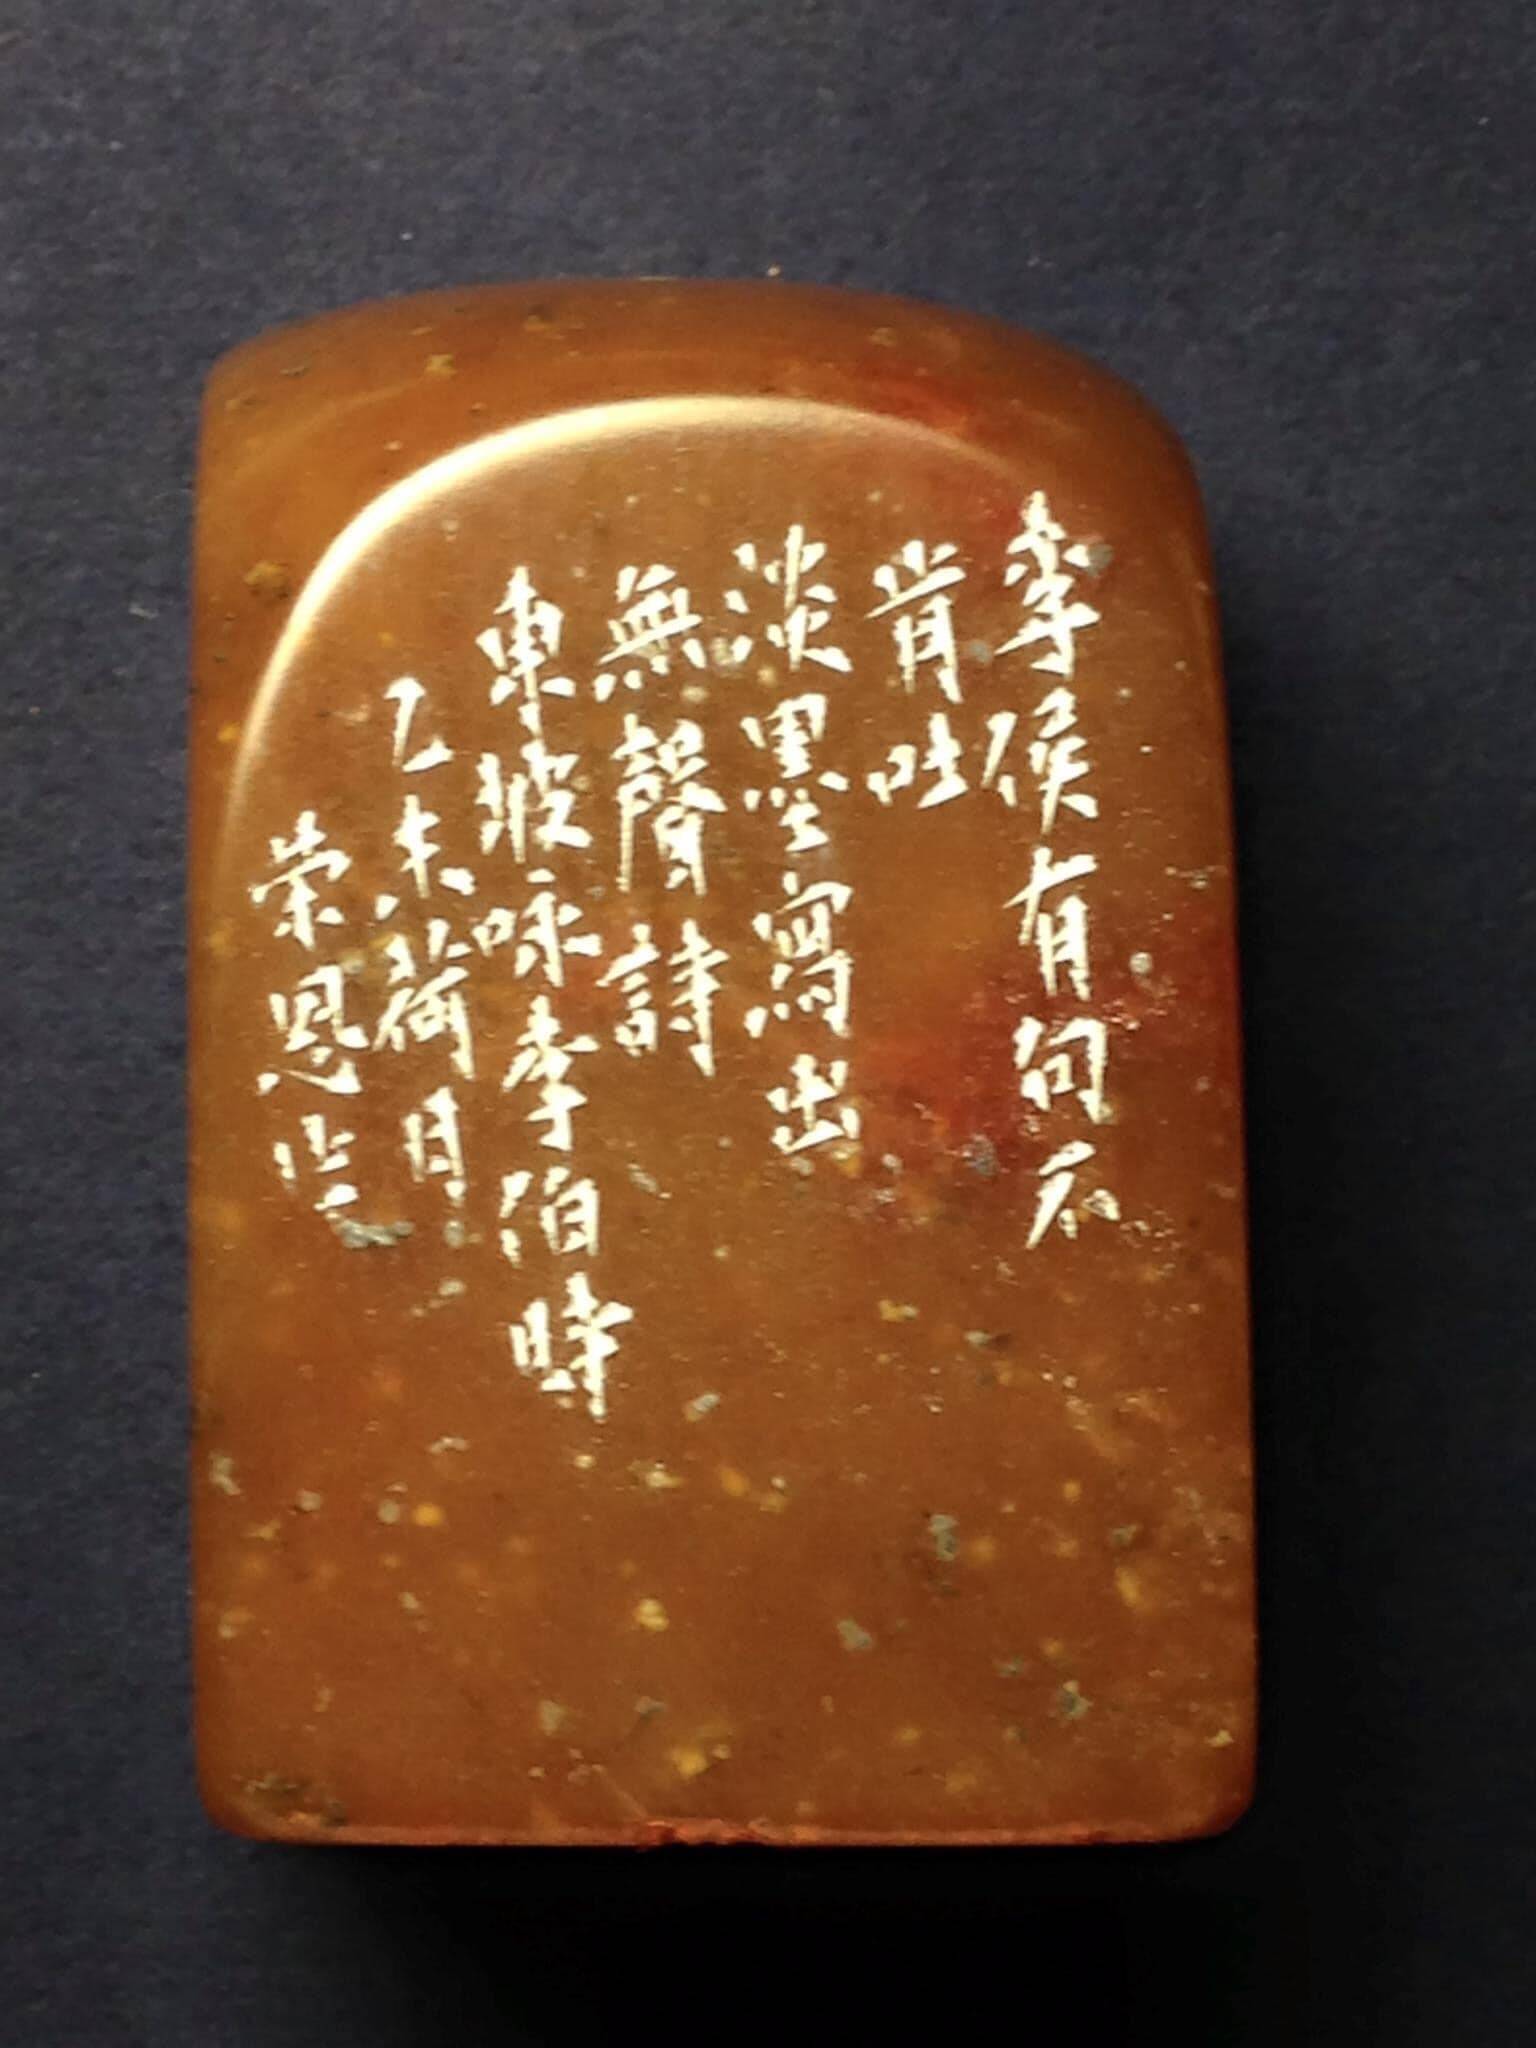 李侯有句不
肯吐
淡墨寫出
無聲詩
東坡咏李伯時
乙未荷月
榮恩作